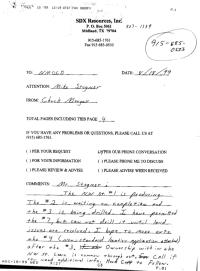 SDX Resources, Inc.
P. O. Box 5061
Midland, TX 79704
915-685-1761
Fax 915-685-0533
915-685-0533
TO: NMOCD DATE: 8/18/99
ATTENTION: Mike Stogner
FROM: Chuck Morgan
TOTAL PAGES INCLUDING THIS PAGE
IF YOU HAVE ANY PROBLEMS OR QUESTIONS, PLEASE CALL US AT
(915) 685-1761.
( ) PER YOUR REQUEST PER OUR PHONE CONVERSATION
( ) FOR YOUR INFORMATION ( ) PLEASE PHONE ME TO DISCUSS
( ) PLEASE REVIEW & ADVISE ( ) PLEASE ADVISE WHEN RECEIVED
COMMENTS: Mr. Stogner:
The NW St #1 is producing.
The #2 is waiting on completion and
the #3 is being drilled. I have permitted
the #7, but can not drill it until these
issues are resolved. I hope to move onto
the #4 (non-standard location application attached)
after the #3. Ownership with in the
NW St. Lease is common through out. Call if
you need additional info. Hard Copy to Follow.